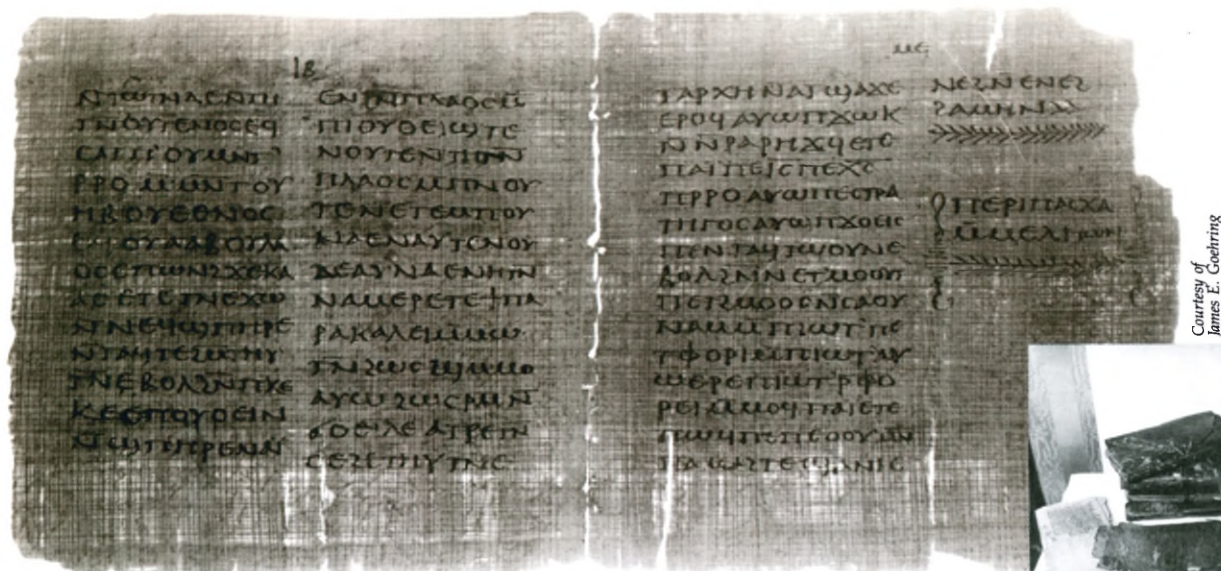 ⲓⲃ
ⲛⲧⲱⲧⲛⲇⲉⲛⲧⲉ
ⲧⲛⲟⲩⲅⲉⲛⲟⲥⲉϥ
ⲟⲩⲙⲛⲧ
ⲣⲣⲟⲙⲙⲛⲧⲟⲩ
ⲏⲃⲟⲩϩⲉⲑⲛⲟⲥ
ⲉϥⲟⲩⲁⲁⲃⲟⲩⲗⲁ
ⲟⲥⲉⲡⲱⲛϩϫⲉⲕⲁ
ⲁⲥⲉⲧⲉⲧⲛⲉϫⲱ
ⲛⲛⲉϥϣⲡⲏⲣⲉ
ⲛⲧⲁϥⲧⲉϩⲙⲧⲏⲩ
ⲧⲛⲉⲃⲟⲗϩⲙⲡⲕⲉ
ⲕⲉⲉⲡⲟⲩⲟⲉⲓⲛ
ⲡⲗⲁⲟⲥⲉⲛ
ⲡⲓⲟⲩⲟⲉⲓϣⲧⲉ
ⲛⲟⲩⲧⲉⲛⲧⲏⲛ
ⲡⲗⲁⲟⲥⲙⲡⲛⲟⲩ
ⲧⲉⲛⲉⲧⲉⲙⲡⲟⲩ
ⲛⲁⲉⲛⲁⲩⲧⲉⲛⲟⲩ
ⲇⲉⲁⲩⲛⲁⲉⲛⲏⲧⲛ
ⲛⲁⲙⲉⲣⲉⲧⲉϯⲡⲁ
ⲣⲁⲕⲁⲗⲉⲓⲙⲙⲱ
ⲧⲛϩⲱⲥϣⲙⲙⲟ
ⲁⲩⲱϩⲱⲥⲣⲙⲛ
ϭⲟⲉⲓⲗⲉⲁⲧⲣⲉⲧⲛ
ⲥⲉϩⲉⲧⲏⲩⲧⲛⲉ
ⲧⲁⲣⲭⲏⲛⲁⲧϣⲁϫⲉ
ⲉⲣⲟⲥⲁⲩⲱⲡϫⲱⲕ
ⲛⲛⲁⲣⲁⲣⲏϫϥⲉⲧⲉ
ⲡⲁⲓⲡⲉⲓⲥⲡⲉⲭⲥ
ⲡⲣⲣⲟⲁⲩⲱⲡⲉⲥⲧⲣⲁ
ⲧⲏⲅⲟⲥⲁⲩⲱⲡϫⲟⲉⲓⲥ
ⲡⲉⲛⲧⲁϥⲧⲱⲟⲩⲛⲉ
ⲃⲟⲗϩⲛⲛⲉⲧⲙⲟⲟⲩⲧ
ⲡⲉⲧϩⲙⲟⲟⲥⲛⲥⲁⲟⲩ
ⲛⲁⲙⲙⲡⲓⲱⲧⲡⲉ
ⲧⲫⲟⲣⲓⲙⲡⲓⲱⲧⲁⲩ
ⲱⲉⲣⲉⲡⲓⲱⲧⲣⲫⲟ
ⲣⲉⲓⲙⲙⲟϥⲡⲁⲓⲉⲧⲉ
ⲡⲱϥⲡⲉⲡⲉⲟⲟⲩⲙⲛ
ⲡⲁⲙⲁϩⲧⲉϣⲁⲛⲓⲉ
ⲛⲉϩⲛⲉⲛⲉϩ
ϩⲁⲙⲏⲛ
ⲡⲉⲣⲓⲡⲁⲥⲭⲁ
ⲙⲙⲉⲗⲓⲧⲱⲛ
Courtesy of
James E. Goehring